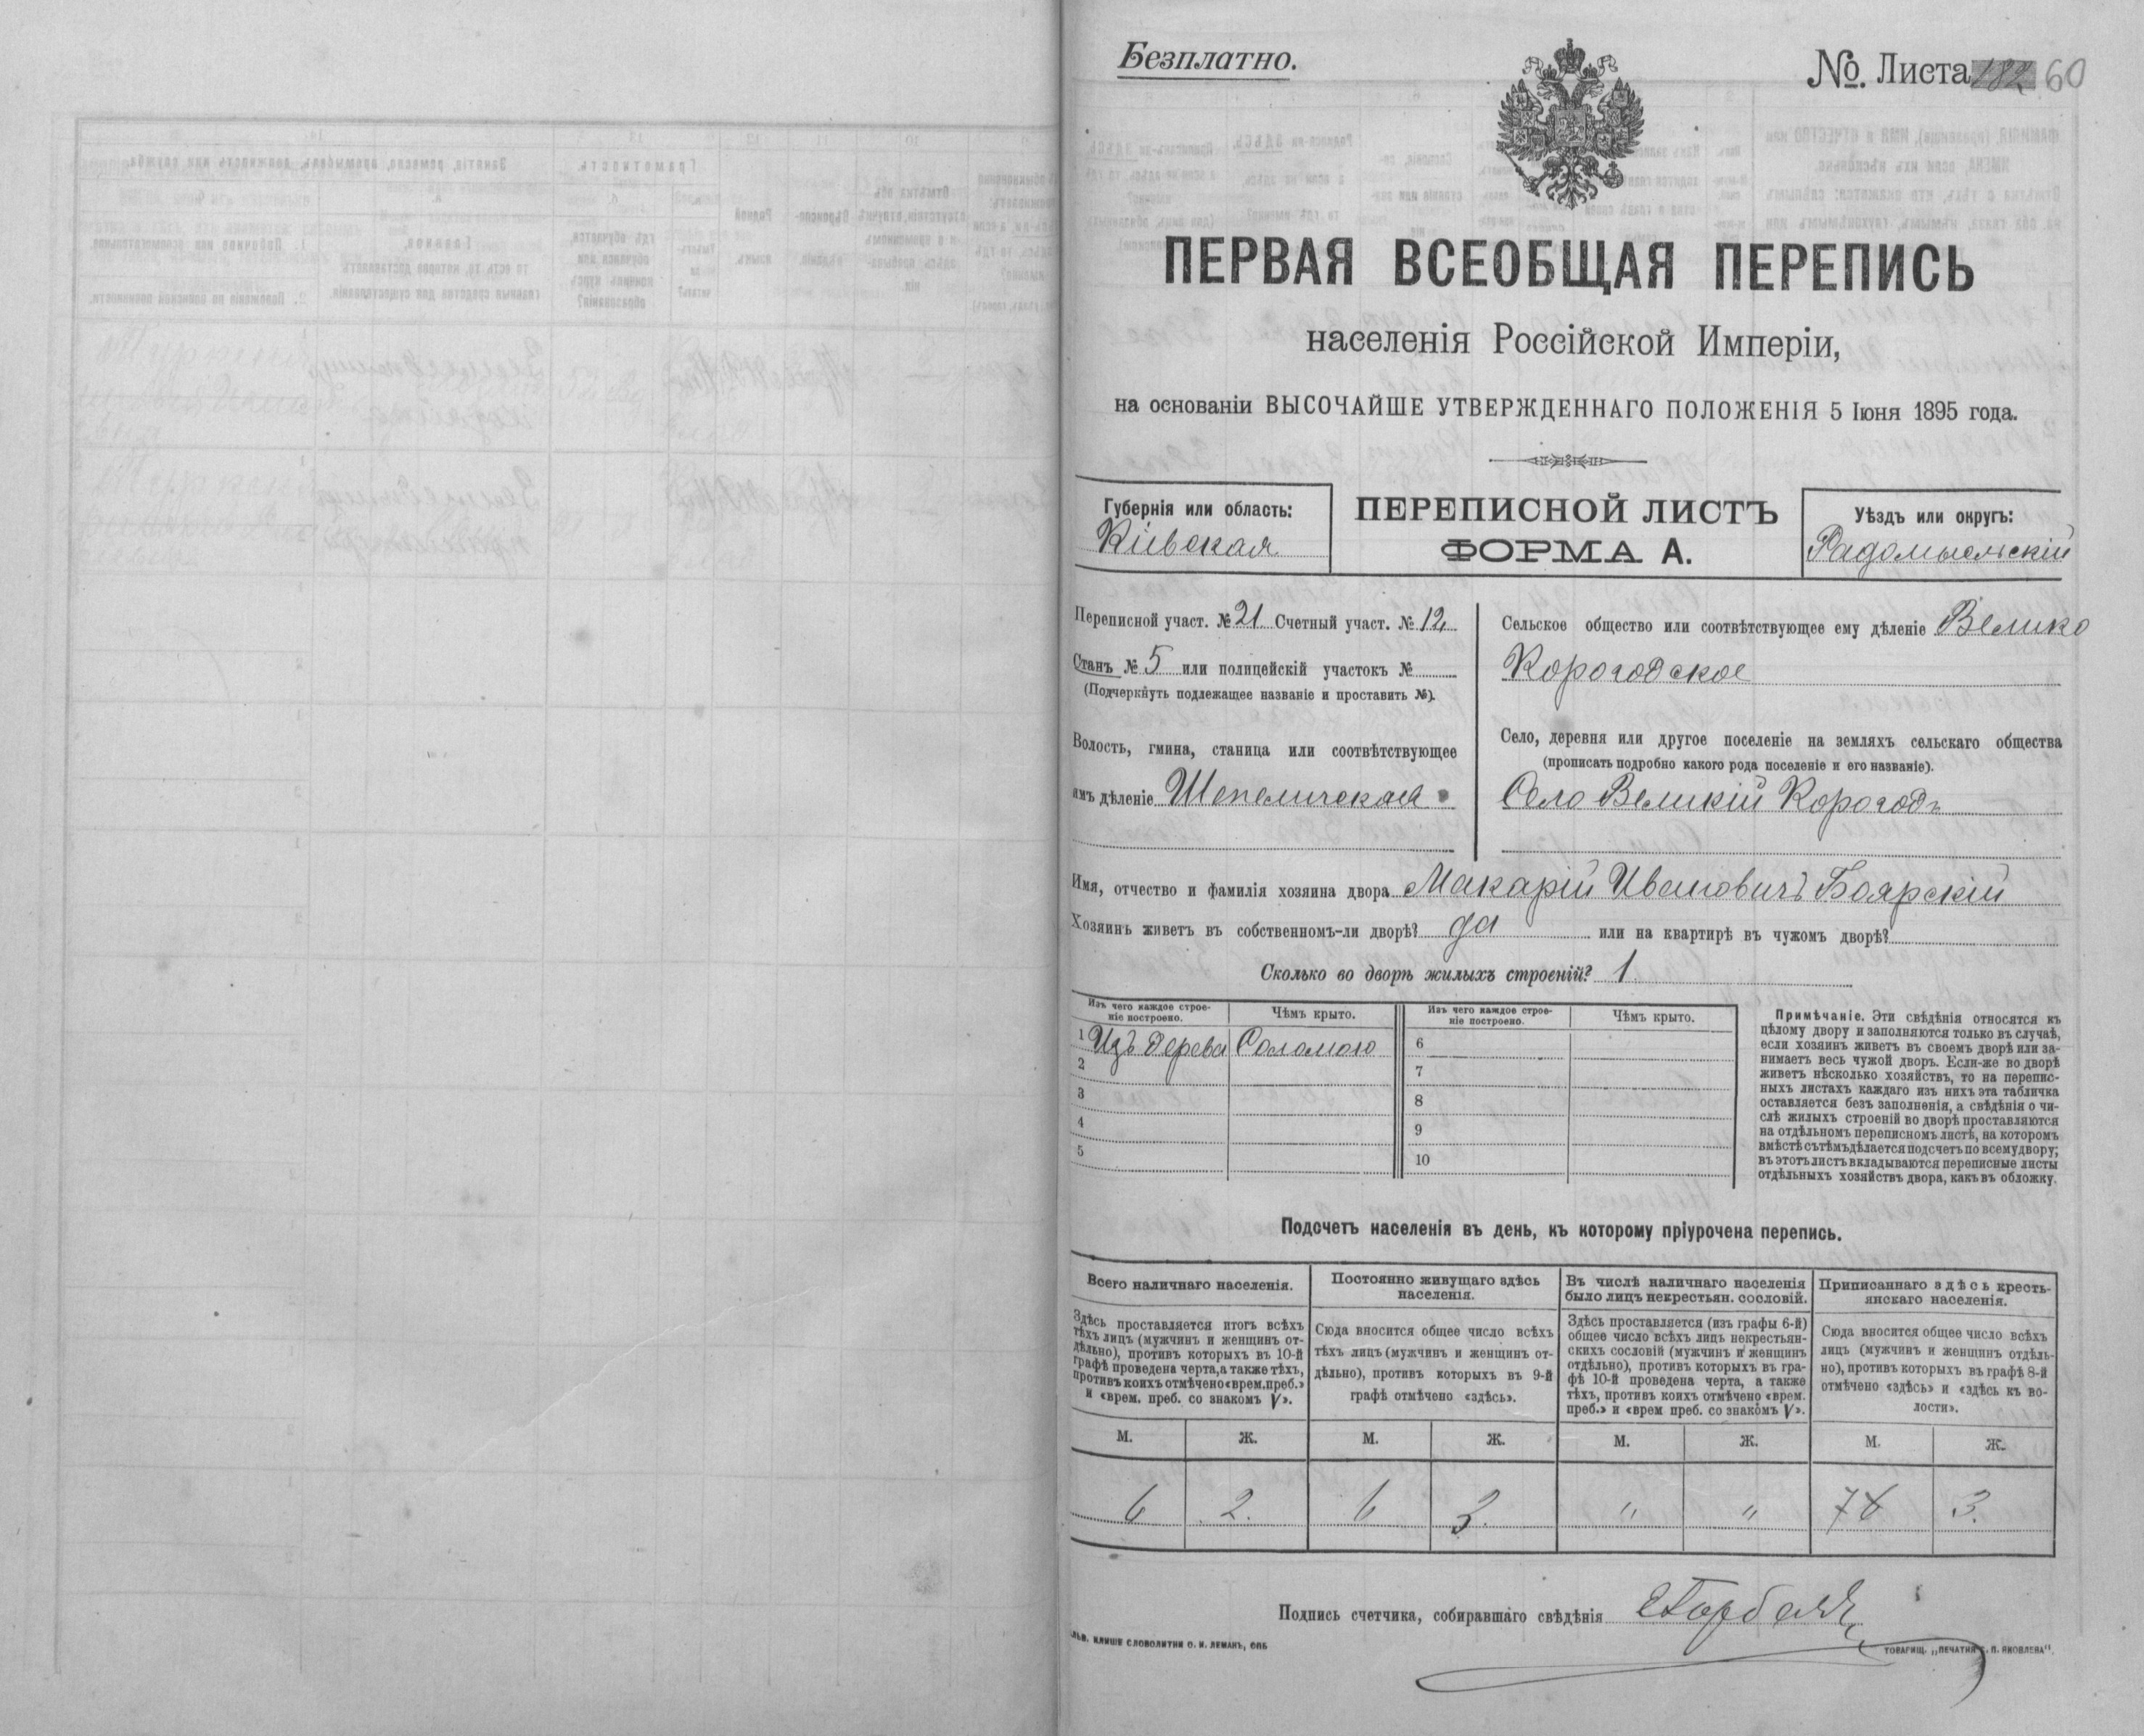 Безплатно.
№. Листа 182 60
ПЕРВАЯ ВСЕОБЩАЯ ПЕРЕПИСЬ
населенія Россійской Имперіи,
на основаніи ВЫСОЧАЙШЕ УТВЕРЖДЕННАГО ПОЛОЖЕНІЯ 5 Іюня 1895 года.
Губернія или область:
Кіевская
ПЕРЕПИСНОЙ ЛИСТЪ
ФОРМА А.
Уѣздъ или округъ:
Радомысльскій
Переписной участ. № 21 Счетный участ. № 12
Станъ № 5 или полицейскій участокъ №
(Подчеркнуть подлежащее названіе и проставить №).
Волость, гмина, станица или соотвѣтствующее
имъ дѣленіе Шепеличская
Сельское общество или соотвѣтствующее ему дѣленіе Велико
Корогодское
Село, деревня или другое поселеніе на земляхъ сельскаго общества
(прописать подробно какого рода поселеніе и его названіе).
Село Великій Корогодъ
Имя, отчество и фамилія хозяина двора Макарій Ивановичъ Боярскій
Хозяинъ живетъ въ собственномъ-ли дворѣ? да или на квартирѣ въ чужомъ дворѣ?
Сколько во дворѣ жилыхъ строеній? 1
Изъ чего каждое строе-
ніе построено.
Чѣмъ крыто.
Изъ чего каждое строе-
ніе построено.
Чѣмъ крыто.
1 Изъ дерева Соломою
2
3
4
5
6
7
8
9
10
Примѣчаніе. Эти свѣдѣнія относятся къ
цѣлому двору и заполняются только въ случаѣ,
если хозяинъ живетъ въ своемъ дворѣ или за-
нимаетъ весь чужой дворъ. Если-же во дворѣ
живетъ нѣсколько хозяйствъ, то на перепис-
ныхъ листахъ каждаго изъ нихъ эта табличка
оставляется безъ заполненія, а свѣдѣнія о чи-
слѣ жилыхъ строеній во дворѣ проставляются
на отдѣльномъ переписномъ листѣ, на которомъ
вмѣстѣ съ тѣмъ дѣлается подсчетъ по всему двору;
въ этотъ листъ вкладываются переписные листы
отдѣльныхъ хозяйствъ двора, какъ въ обложку.
Подсчетъ населенія въ день, къ которому пріурочена перепись.
Всего наличнаго населенія.
Здѣсь проставляется итогъ всѣхъ
тѣхъ лицъ (мужчинъ и женщинъ от-
дѣльно), противъ которыхъ въ 10-й
графѣ проведена черта, а также тѣхъ,
противъ коихъ отмѣчено «врем. преб.»
и «врем. преб. со знакомъ V».
Постоянно живущаго здѣсь
населенія.
Сюда вносится общее число всѣхъ
тѣхъ лицъ (мужчинъ и женщинъ от-
дѣльно), противъ которыхъ въ 9-й
графѣ отмѣчено «здѣсь».
Въ числѣ наличнаго населенія
было лицъ некрестьян. сословій.
Здѣсь проставляется (изъ графы 6-й)
общее число всѣхъ лицъ некрестьян-
скихъ сословій (мужчинъ и женщинъ
отдѣльно), противъ которыхъ въ гра-
фѣ 10-й проведена черта, а также
тѣхъ, противъ коихъ отмѣчено «врем.
преб.» и «врем преб. со знакомъ V».
Приписаннаго здѣсь кресть-
янскаго населенія.
Сюда вносится общее число всѣхъ
лицъ (мужчинъ и женщинъ отдѣль-
но), противъ которыхъ въ графѣ 8-й
отмѣчено «здѣсь» и «здѣсь къ во-
лости».
М. Ж. М. Ж. М. Ж. М. Ж.
6 2. 6 3. " " 7 6 3.
Подпись счетчика, собиравшаго свѣдѣнія
КЛИШЕ СЛОВОЛИТНИ О. И. ЛЕМАНЪ, СПБ
ТОВАРИЩ. „ПЕЧАТНЯ С. П. ЯКОВЛЕВА".